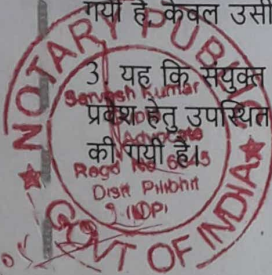 गयी है केवल उसी
3. यह कि संयुक्त
प्रवेश हेतु उपस्थित
की गयी है।
NOTARY PUBLIC
Sarvesh Kumar
Advocate
Regd No
Distt Pilibhit
GOVT OF INDIA